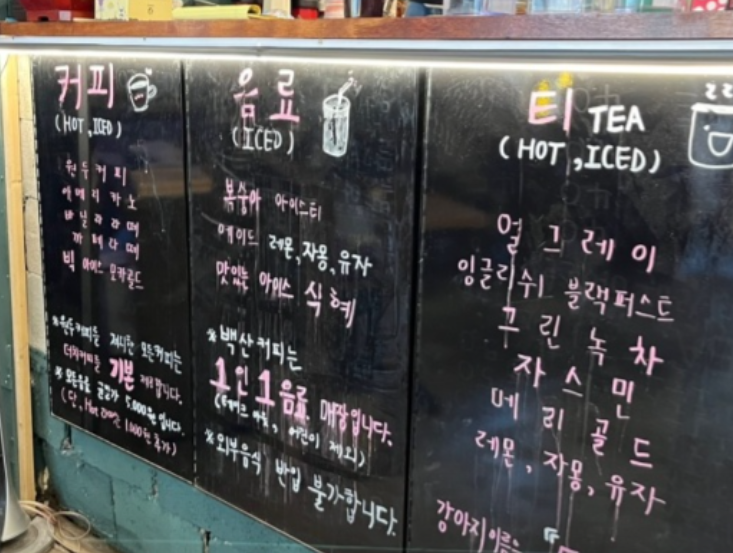 커피
(HOT, ICED)
원두커피
아메리카노
바닐라라떼
카페라떼
빅 아이스 모카골드
※ 원두커피를 제외한 모든커피는
더치커피를 기본
※ 모든음료 균일가 5,000원 입니다.
(단, Hot 라떼는 1,000원 추가)
음료
(ICED)
복숭아 아이스티
에이드 레몬, 자몽, 유자
맛있는 아이스 식혜
※ 백산커피는
1인 1음료 매장입니다.
(테이크 아웃, 어린이 제외)
※ 외부음식 반입 불가합니다.
티 TEA
(HOT, ICED)
얼그레이
잉글리쉬 블랙퍼스트
꾸린녹차
자스민
메리골드
레몬, 자몽, 유자
강아지이름은